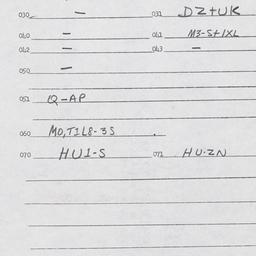 030 - 031 DZ+UK
040 - 041 M3-S+1XL
042 - 043 -
050 -
051 Q-AP
060 MO,T1L8-3S
070 HU1-S 071 HU-ZN